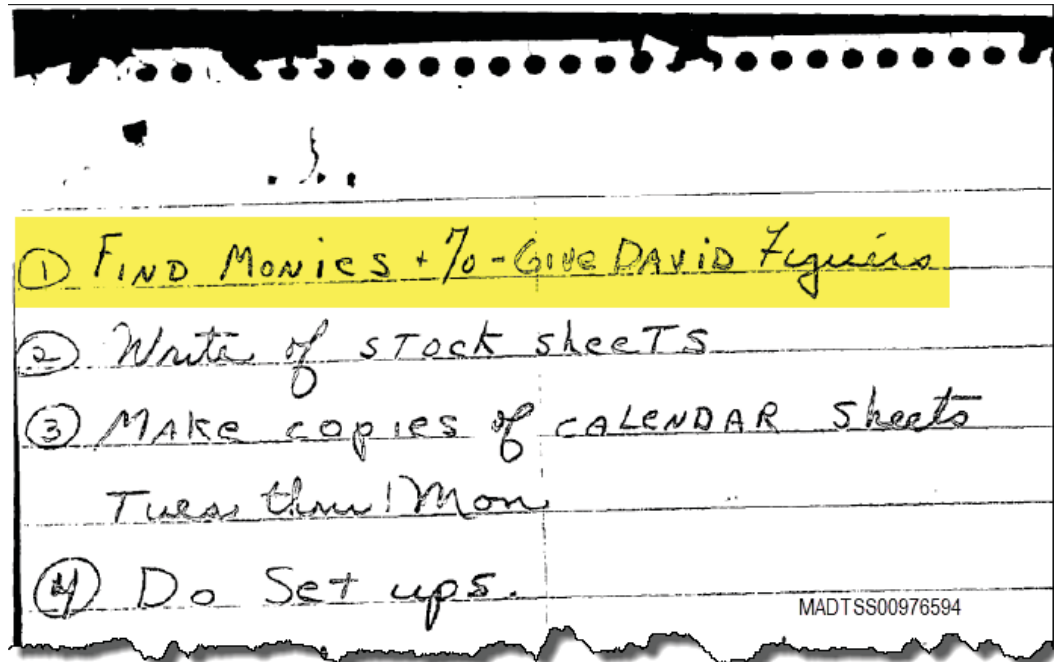 ① FIND MONIES + % - GIVE DAVID Figures
② Write of STOCK sheeTS
③ MAKe copies of CALENDAR Sheets
Tues thru Mon
④ Do Set ups.
MADTSS00976594